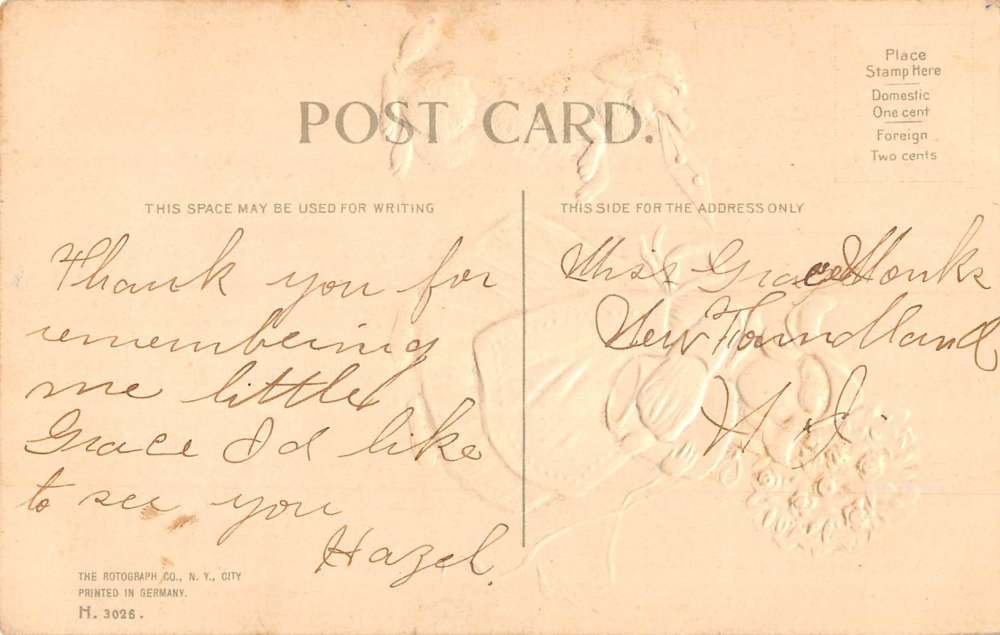 POST CARD.
Place
Stamp Here
Domestic
One cent
Foreign
Two cents
THIS SPACE MAY BE USED FOR WRITING
THIS SIDE FOR THE ADDRESS ONLY
Thank you for
remembering
me little
Grace I'd like
to see you
Hazel.
Miss Grace Monks
New Foundland
N. J.
THE ROTOGRAPH CO., N. Y., CITY
PRINTED IN GERMANY.
H. 3026.